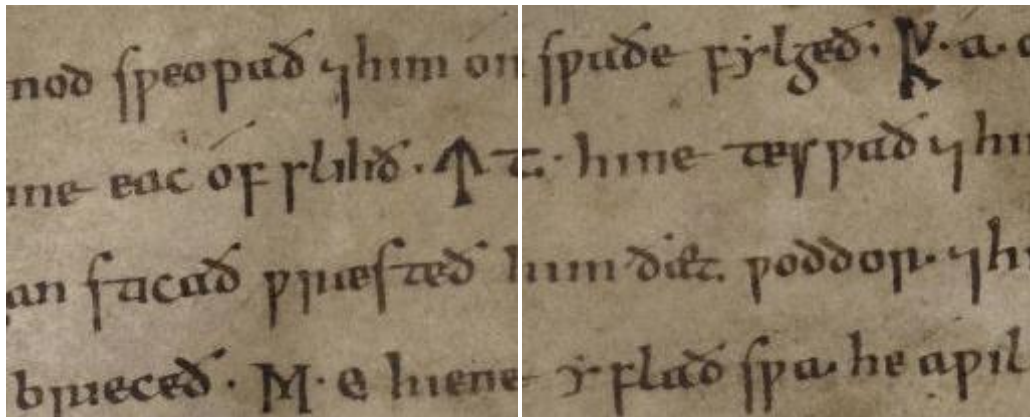 mod sƿeopað ⁊ him on sƿaðe fylgeð · ᚪ · a ·
ine eac ofslihð · ᛏ T · hine tesƿað ⁊ hin
an sticað ƿræsteð him ðæt ƿoddor · ⁊ hi
brieceð · ᛖ · e hiene yflað sƿa he a ƿil